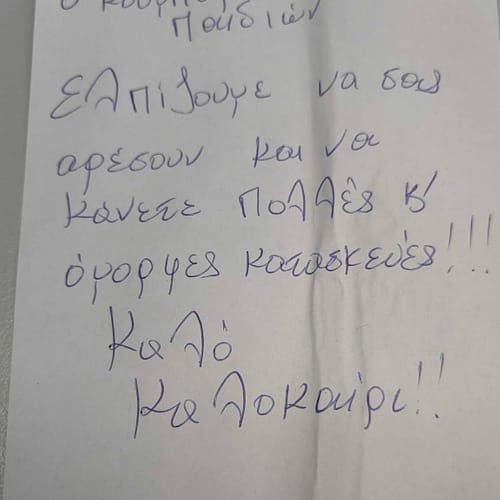 Παιδιών
Ελπίζουμε να σας
αρέσουν και να
κάνετε πολλές κ'
όμορφες κατασκευές!!!
Καλό
Καλοκαίρι!!